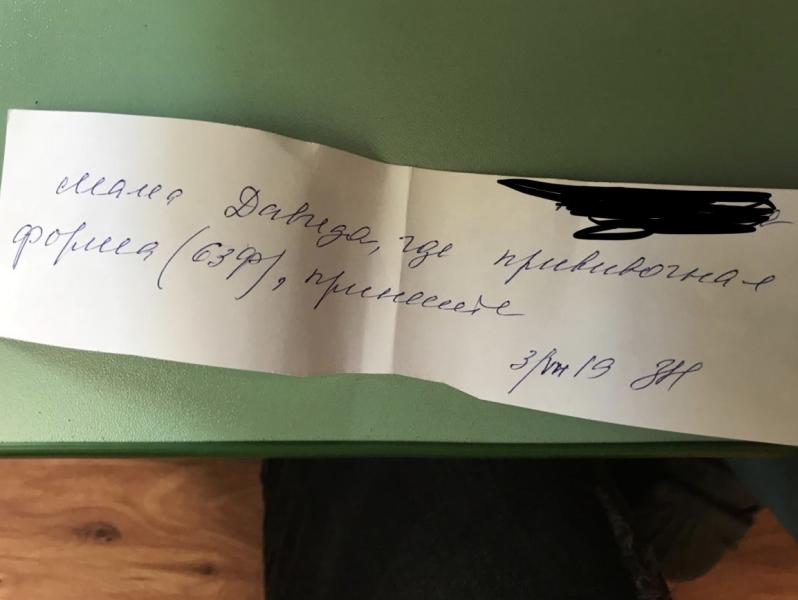 мама Давида, где прививочная
форма (63ф), принесите
3/VII 19 ЗН